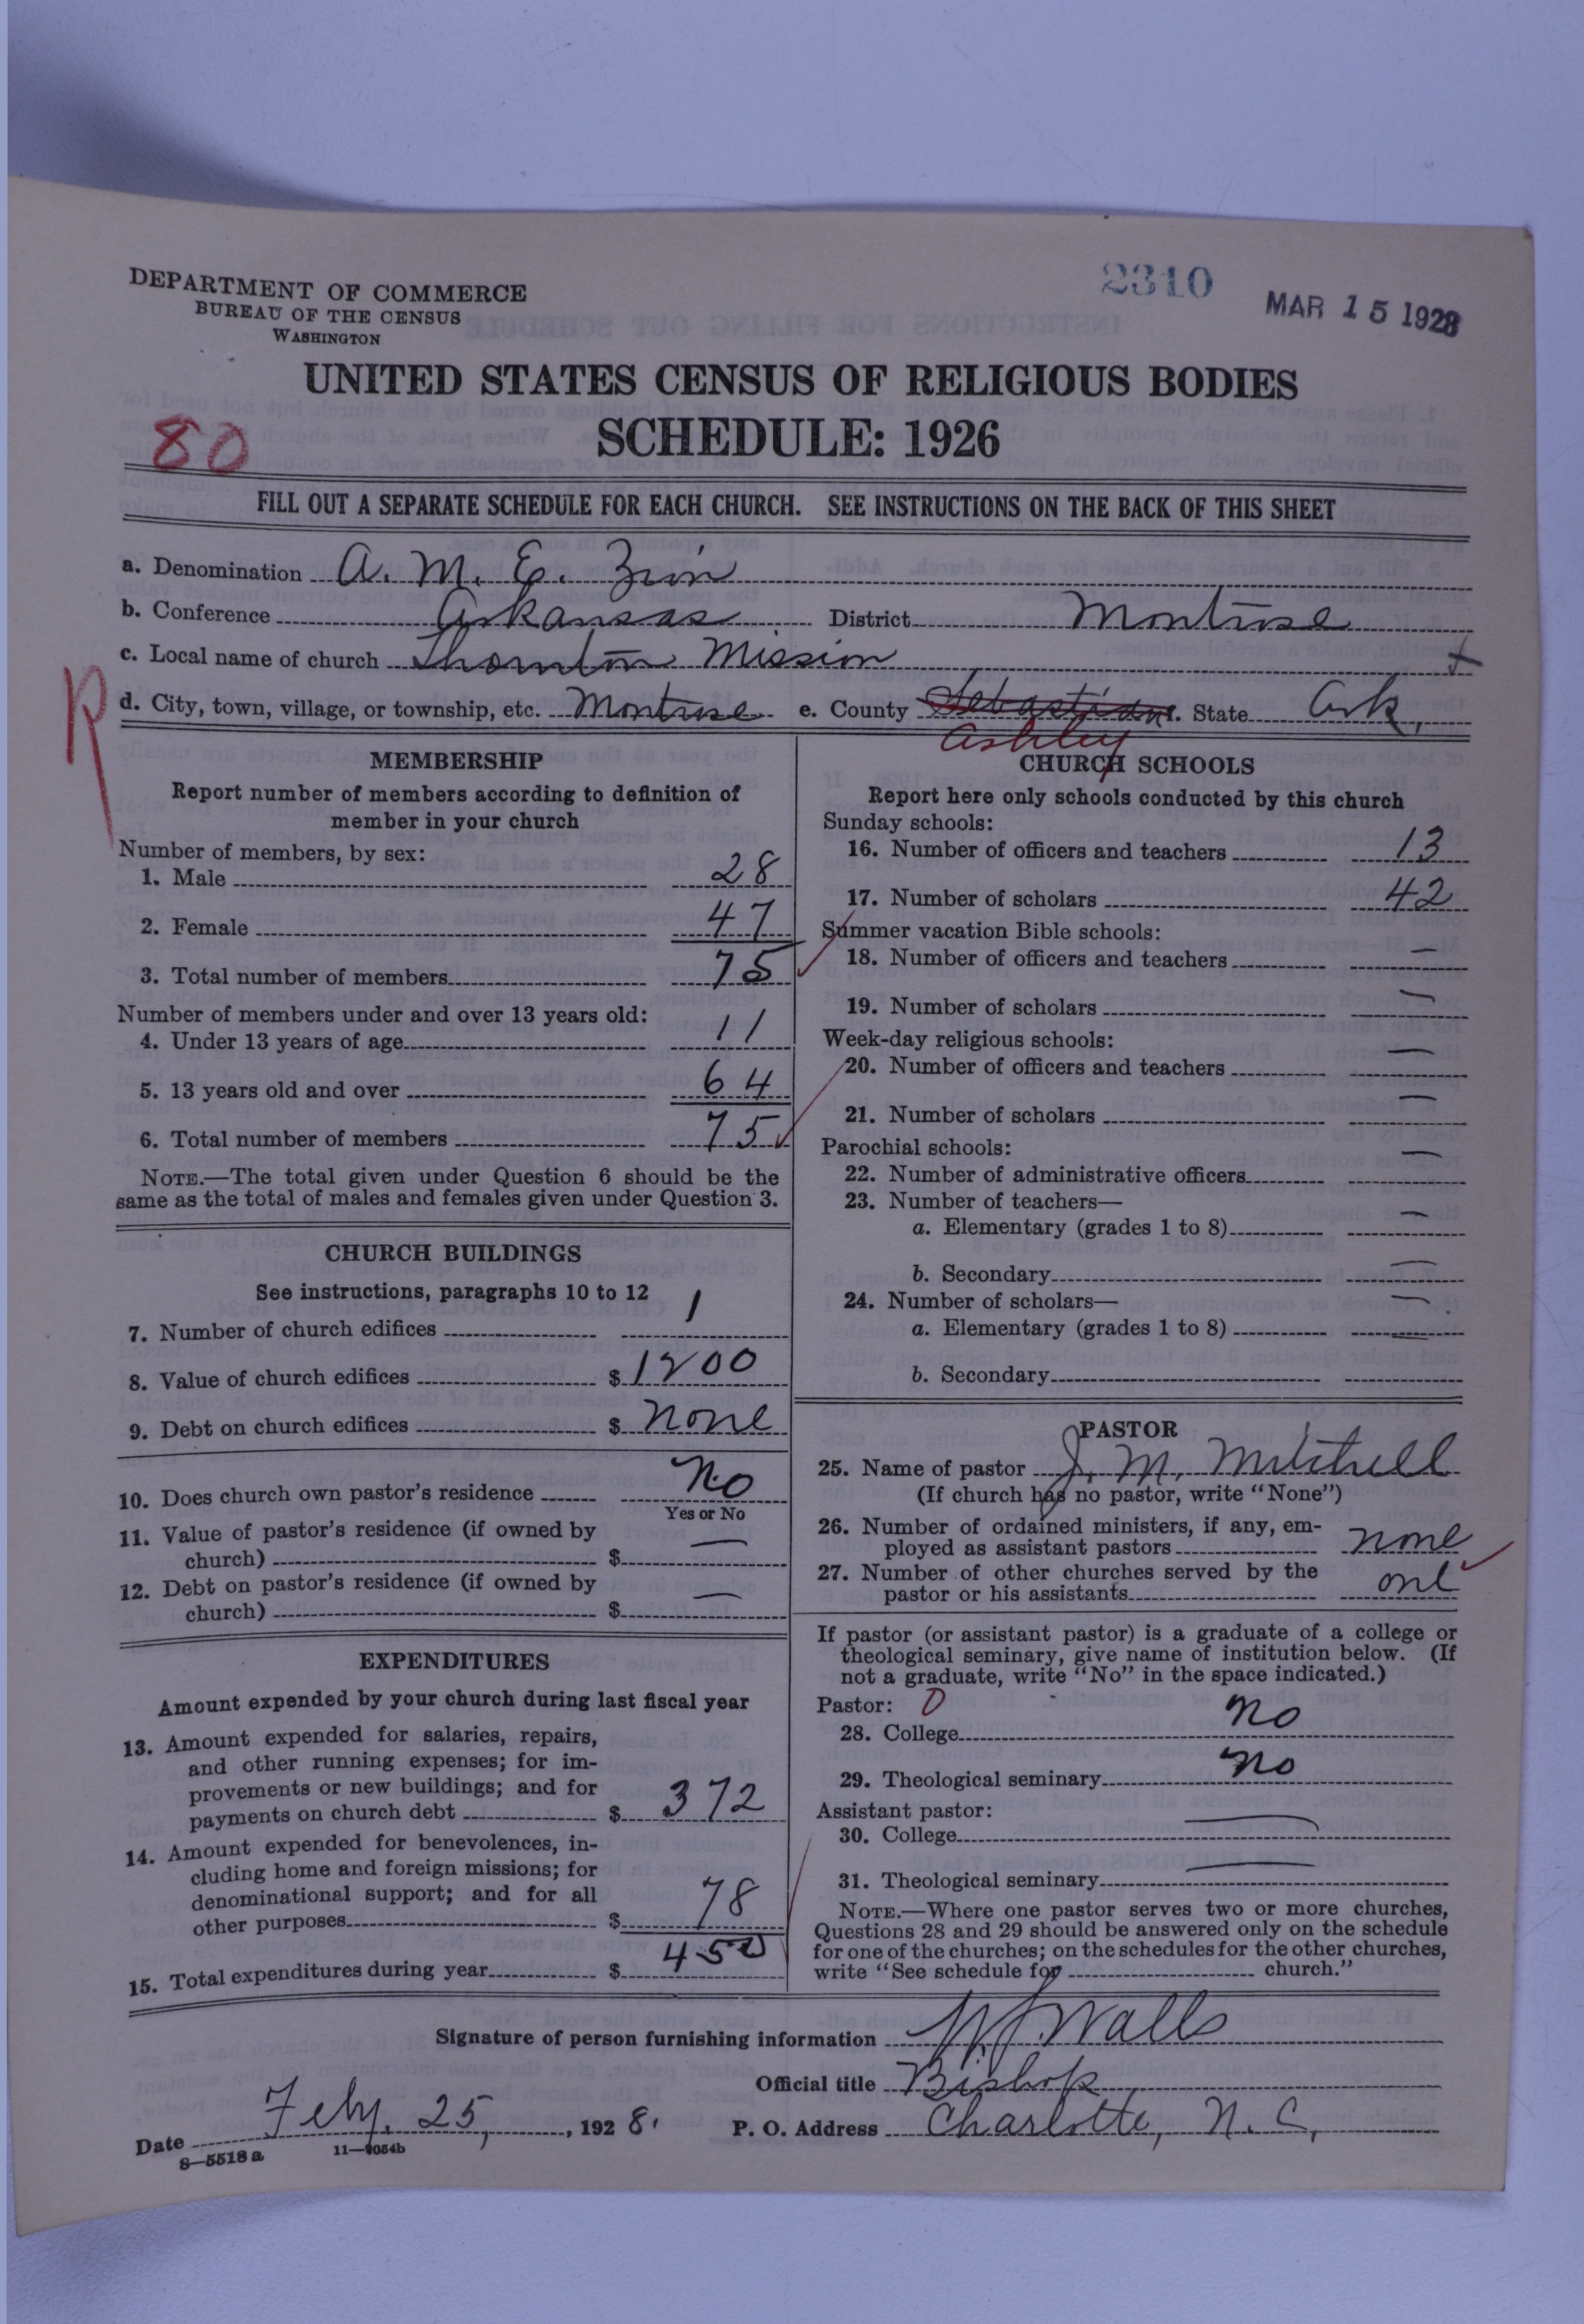 DEPARTMENT OF COMMERCE
BUREAU OF THE CENSUS
WASHINGTON
2310
MAR 15 1928
UNITED STATES CENSUS OF RELIGIOUS BODIES
SCHEDULE: 1926
80
FILL OUT A SEPARATE SCHEDULE FOR EACH CHURCH. SEE INSTRUCTIONS ON THE BACK OF THIS SHEET
a. Denomination A. M. E. Zion
b. Conference Arkansas District Montrose
c. Local name of church Thornton Mission
R
d. City, town, village, or township, etc. Montrose e. County Sebastian f. State Ark.
Ashley
MEMBERSHIP
Report number of members according to definition of
member in your church
Number of members, by sex:
1. Male 28
2. Female 47
3. Total number of members 75
Number of members under and over 13 years old:
4. Under 13 years of age 11
5. 13 years old and over 64
6. Total number of members 75
NOTE.—The total given under Question 6 should be the
same as the total of males and females given under Question 3.
CHURCH BUILDINGS
See instructions, paragraphs 10 to 12
7. Number of church edifices 1
8. Value of church edifices $ 1200
9. Debt on church edifices $ none
10. Does church own pastor's residence No
Yes or No
11. Value of pastor's residence (if owned by
church) $ —
12. Debt on pastor's residence (if owned by
church) $ —
EXPENDITURES
Amount expended by your church during last fiscal year
13. Amount expended for salaries, repairs,
and other running expenses; for im-
provements or new buildings; and for
payments on church debt $ 372
14. Amount expended for benevolences, in-
cluding home and foreign missions; for
denominational support; and for all
other purposes $ 78
15. Total expenditures during year $ 450
CHURCH SCHOOLS
Report here only schools conducted by this church
Sunday schools:
16. Number of officers and teachers 13
17. Number of scholars 42
Summer vacation Bible schools:
18. Number of officers and teachers —
19. Number of scholars —
Week-day religious schools:
20. Number of officers and teachers —
21. Number of scholars —
Parochial schools:
22. Number of administrative officers —
23. Number of teachers—
a. Elementary (grades 1 to 8) —
b. Secondary —
24. Number of scholars—
a. Elementary (grades 1 to 8) —
b. Secondary
PASTOR
25. Name of pastor J. M. Mitchell
(If church has no pastor, write "None")
26. Number of ordained ministers, if any, em-
ployed as assistant pastors none
27. Number of other churches served by the
pastor or his assistants one
If pastor (or assistant pastor) is a graduate of a college or
theological seminary, give name of institution below. (If
not a graduate, write "No" in the space indicated.)
Pastor: 0
28. College no
29. Theological seminary no
Assistant pastor:
30. College —
31. Theological seminary —
NOTE.—Where one pastor serves two or more churches,
Questions 28 and 29 should be answered only on the schedule
for one of the churches; on the schedules for the other churches,
write "See schedule for church."
Signature of person furnishing information W. J. Walls
Official title Bishop
Date Feby. 25, 1928. P. O. Address Charlotte, N. C.
8—5518a 11—9054b